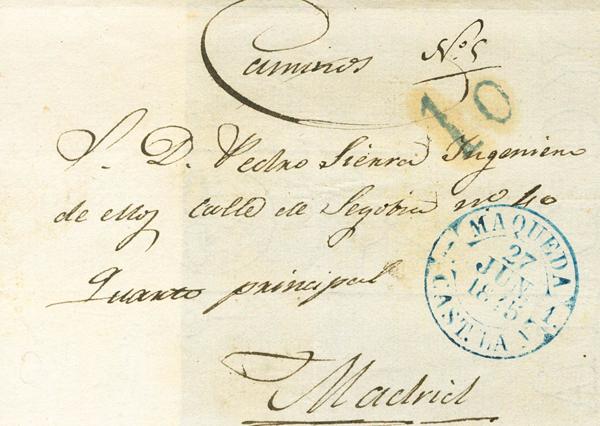 Caminos Nº 5
10
S. D. Pedro Sierra Ingeniero
de ellos Calle de Segobia nº 40
Quarto principal
Madrid
MAQUEDA
27
JUN.
1845
CAST. LA N.